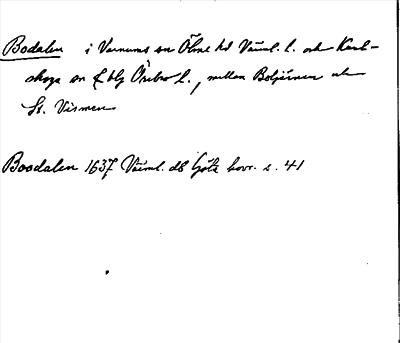 Bodalen i Varnums sn Ölme hd Värml. l. och Karl-
skoga sn o. blg Örebro l., mellan Botjärnen och
St. Vismen
Boodalen 1637 Värml. db Göta hovr. s. 41